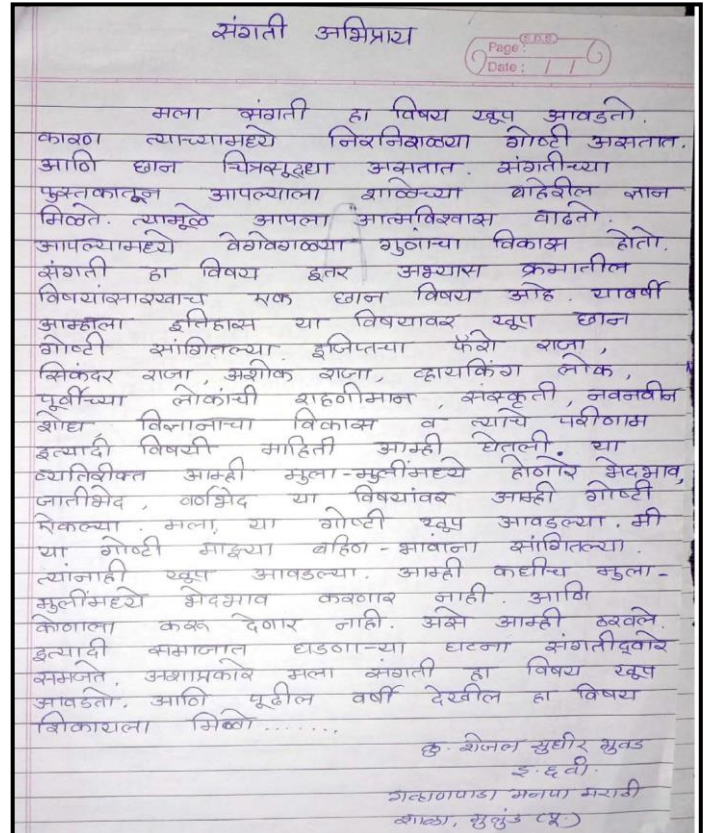 संगती अभिप्राय
S.D.B.
Page :
Date : / /
मला संगती हा विषय खूप आवडतो.
कारण त्याच्यामध्ये निरनिराळ्या गोष्टी असतात.
आणि छान चित्रसूद्धा असतात. संगतीच्या
पुस्तकातून आपल्याला शाळेच्या बाहेरील ज्ञान
मिळते. त्यामूळे आपला आत्मविश्वास वाढतो.
आपल्यामध्ये वेगवेगळ्या गुणांचा विकास होतो.
संगती हा विषय इतर अभ्यास क्रमातील
विषयांसारखाच एक छान विषय आहे. यावर्षी
आम्हाला इतिहास या विषयावर खूप छान
गोष्टी सांगितल्या इजिप्तचा फॅरो राजा,
सिकंदर राजा, अशोक राजा, व्हायकिंग लोक,
पूर्वीच्या लोकांची राहणीमान, संस्कृती, नवनवीन
शोध, विज्ञानाचा विकास व त्याचे परीणाम
इत्यादी विषयी माहिती आम्ही घेतली. या
व्यतिरीक्त आम्ही मुला-मुलींमध्ये होणारे भेदभाव,
जातीभेद, वर्णभेद या विषयांवर आम्ही गोष्टी
ऐकल्या. मला, या गोष्टी खूप आवडल्या. मी
या गोष्टी माझ्या बहिण-भावांना सांगितल्या.
त्यांनाही खूप आवडल्या. आम्ही कधीच मुला-
मुलींमध्ये भेदभाव करणार नाही. आणि
कोणाला करू देणार नाही. असे आम्ही ठरवले.
इत्यादी समाजात घडणा-या घटना संगतीद्वारे
समजते. अशाप्रकारे मला संगती हा विषय खूप
आवडतो. आणि पूढील वर्षी देखील हा विषय
शिकायला मिळो.......
कु. शेजल सुधीर भुवड
इ. ६ वी.
गव्हाणपाडा मनपा मराठी
शाळा, मुलुंड (पू.)